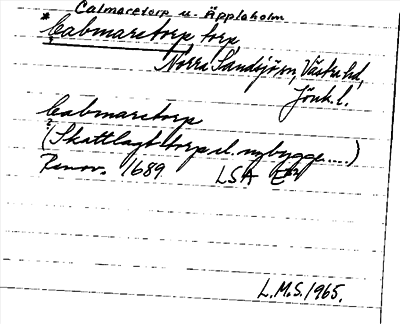 Calmaretorp u. Äppleholm
* Cabmarstorp torp
Norra Sandsjö sn, Västra hd,
Jönk. l.
Cabmarstorp
(Skattlagt torp el. nybygge....)
Renov. 1689 LSA E
L.M.S. 1965.